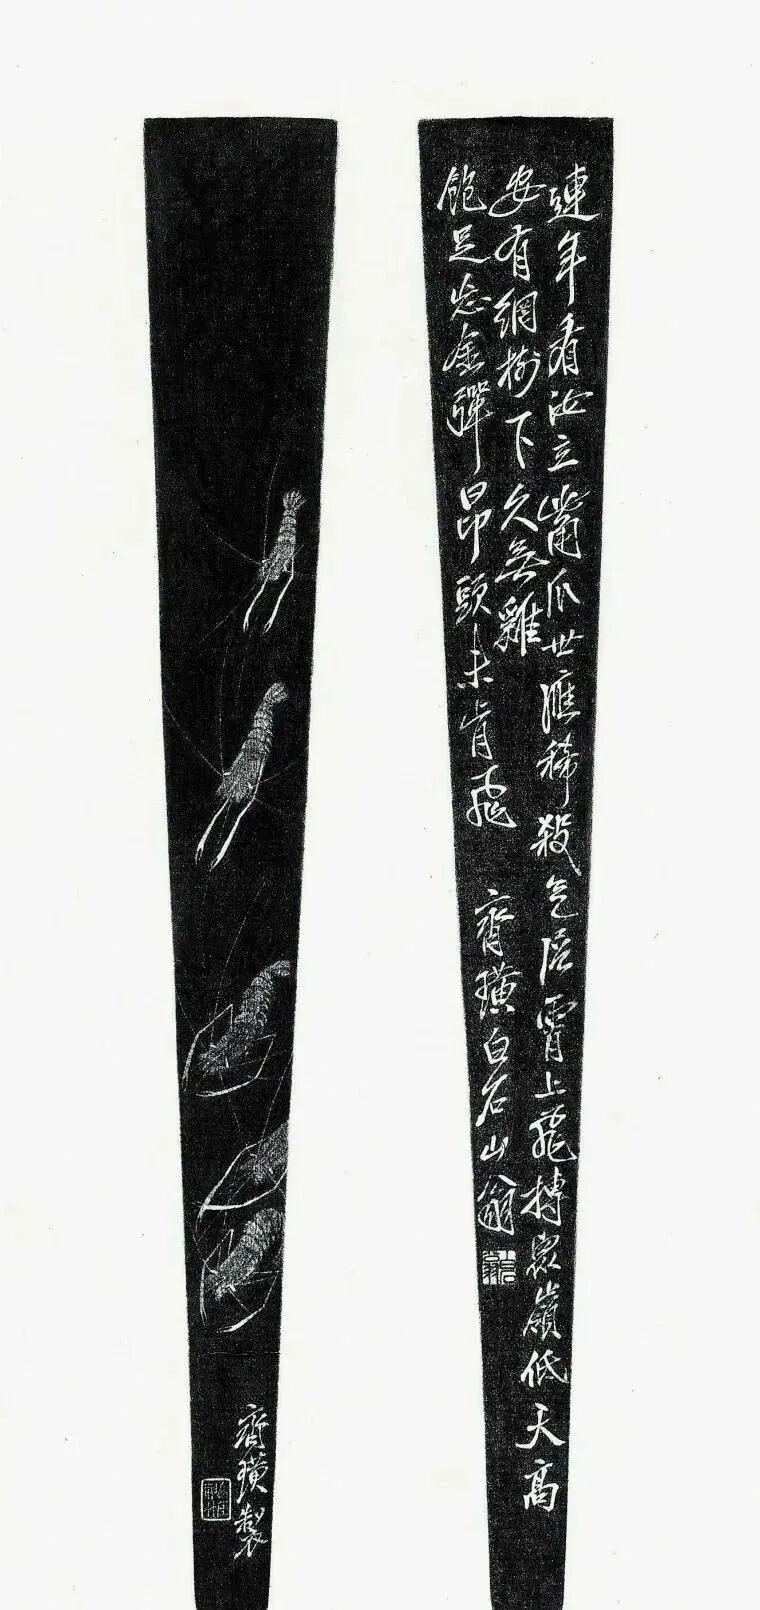 連年看汝立觜爪世應稀殺氣層霄上飛搏眾嶺低天高
安有網樹下久無雞
飽足忘金彈昂頭未肯飛 齊璜白石山翁
齊璜製